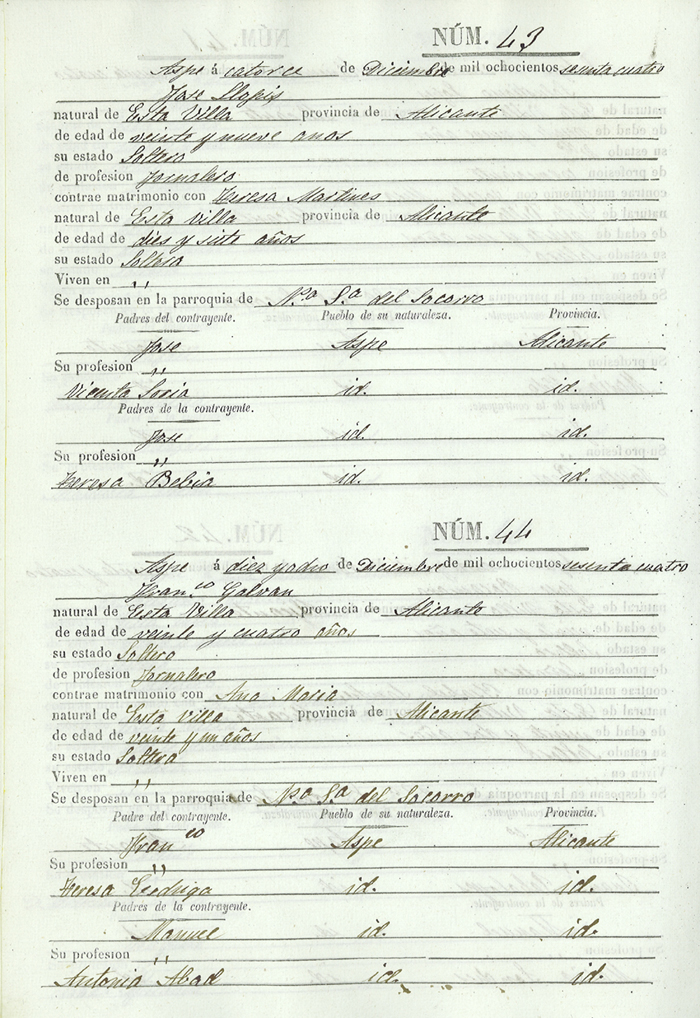 NÚM. 43
Aspe á catorce de Diciembre de mil ochocientos sesenta cuatro
Jose Llapis
natural de Esta Villa provincia de Alicante
de edad de veinte y nueve años
su estado Soltero
de profesion Jornalero
contrae matrimonio con Teresa Martines
natural de Esta villa provincia de Alicante
de edad de dies y siete años
su estado Soltera
Viven en "
Se desposan en la parroquia de Nª Sª del Socorro
Padres del contrayente. Pueblo de su naturaleza. Provincia.
Jose Aspe Alicante
Su profesion "
Vicenta Soria id. id.
Padres de la contrayente.
Jose id. id.
Su profesion "
Teresa Bebia id. id.
NÚM. 44
Aspe á diez y ocho de Diciembre de mil ochocientos sesenta cuatro
Franco Galvan
natural de Esta Villa provincia de Alicante
de edad de veinte y cuatro años
su estado Soltero
de profesion Jornalero
contrae matrimonio con Ana Maria
natural de Esta villa provincia de Alicante
de edad de veinte y un años
su estado Soltera
Viven en "
Se desposan en la parroquia de Nª Sª del Socorro
Padre del contrayente. Pueblo de su naturaleza. Provincia.
Franco Aspe Alicante
Su profesion "
Teresa id. id.
Padres de la contrayente.
Manuel id. id.
Su profesion "
Antonia Abad id. id.